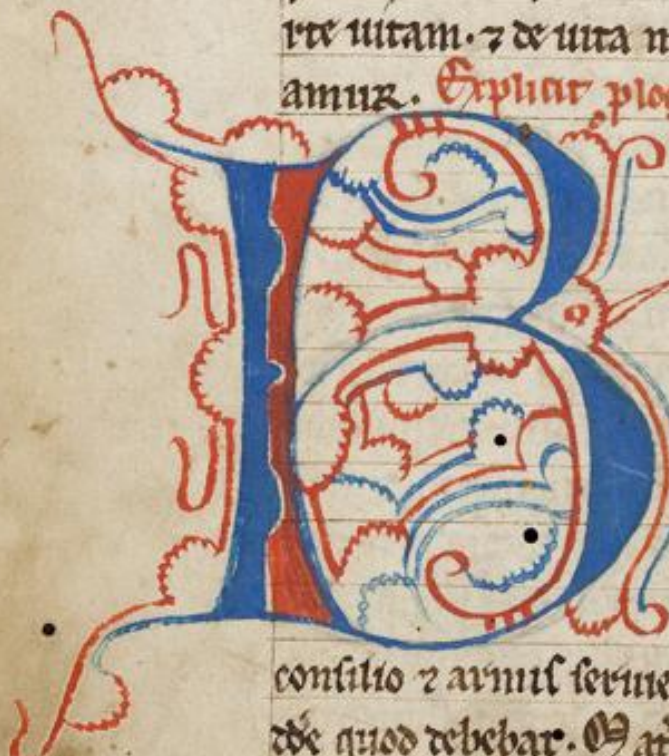 rte uitam. ⁊ de uita n
amur. Explicit plog
B
consilio ⁊ armis serue
dde quod debebat. Mar